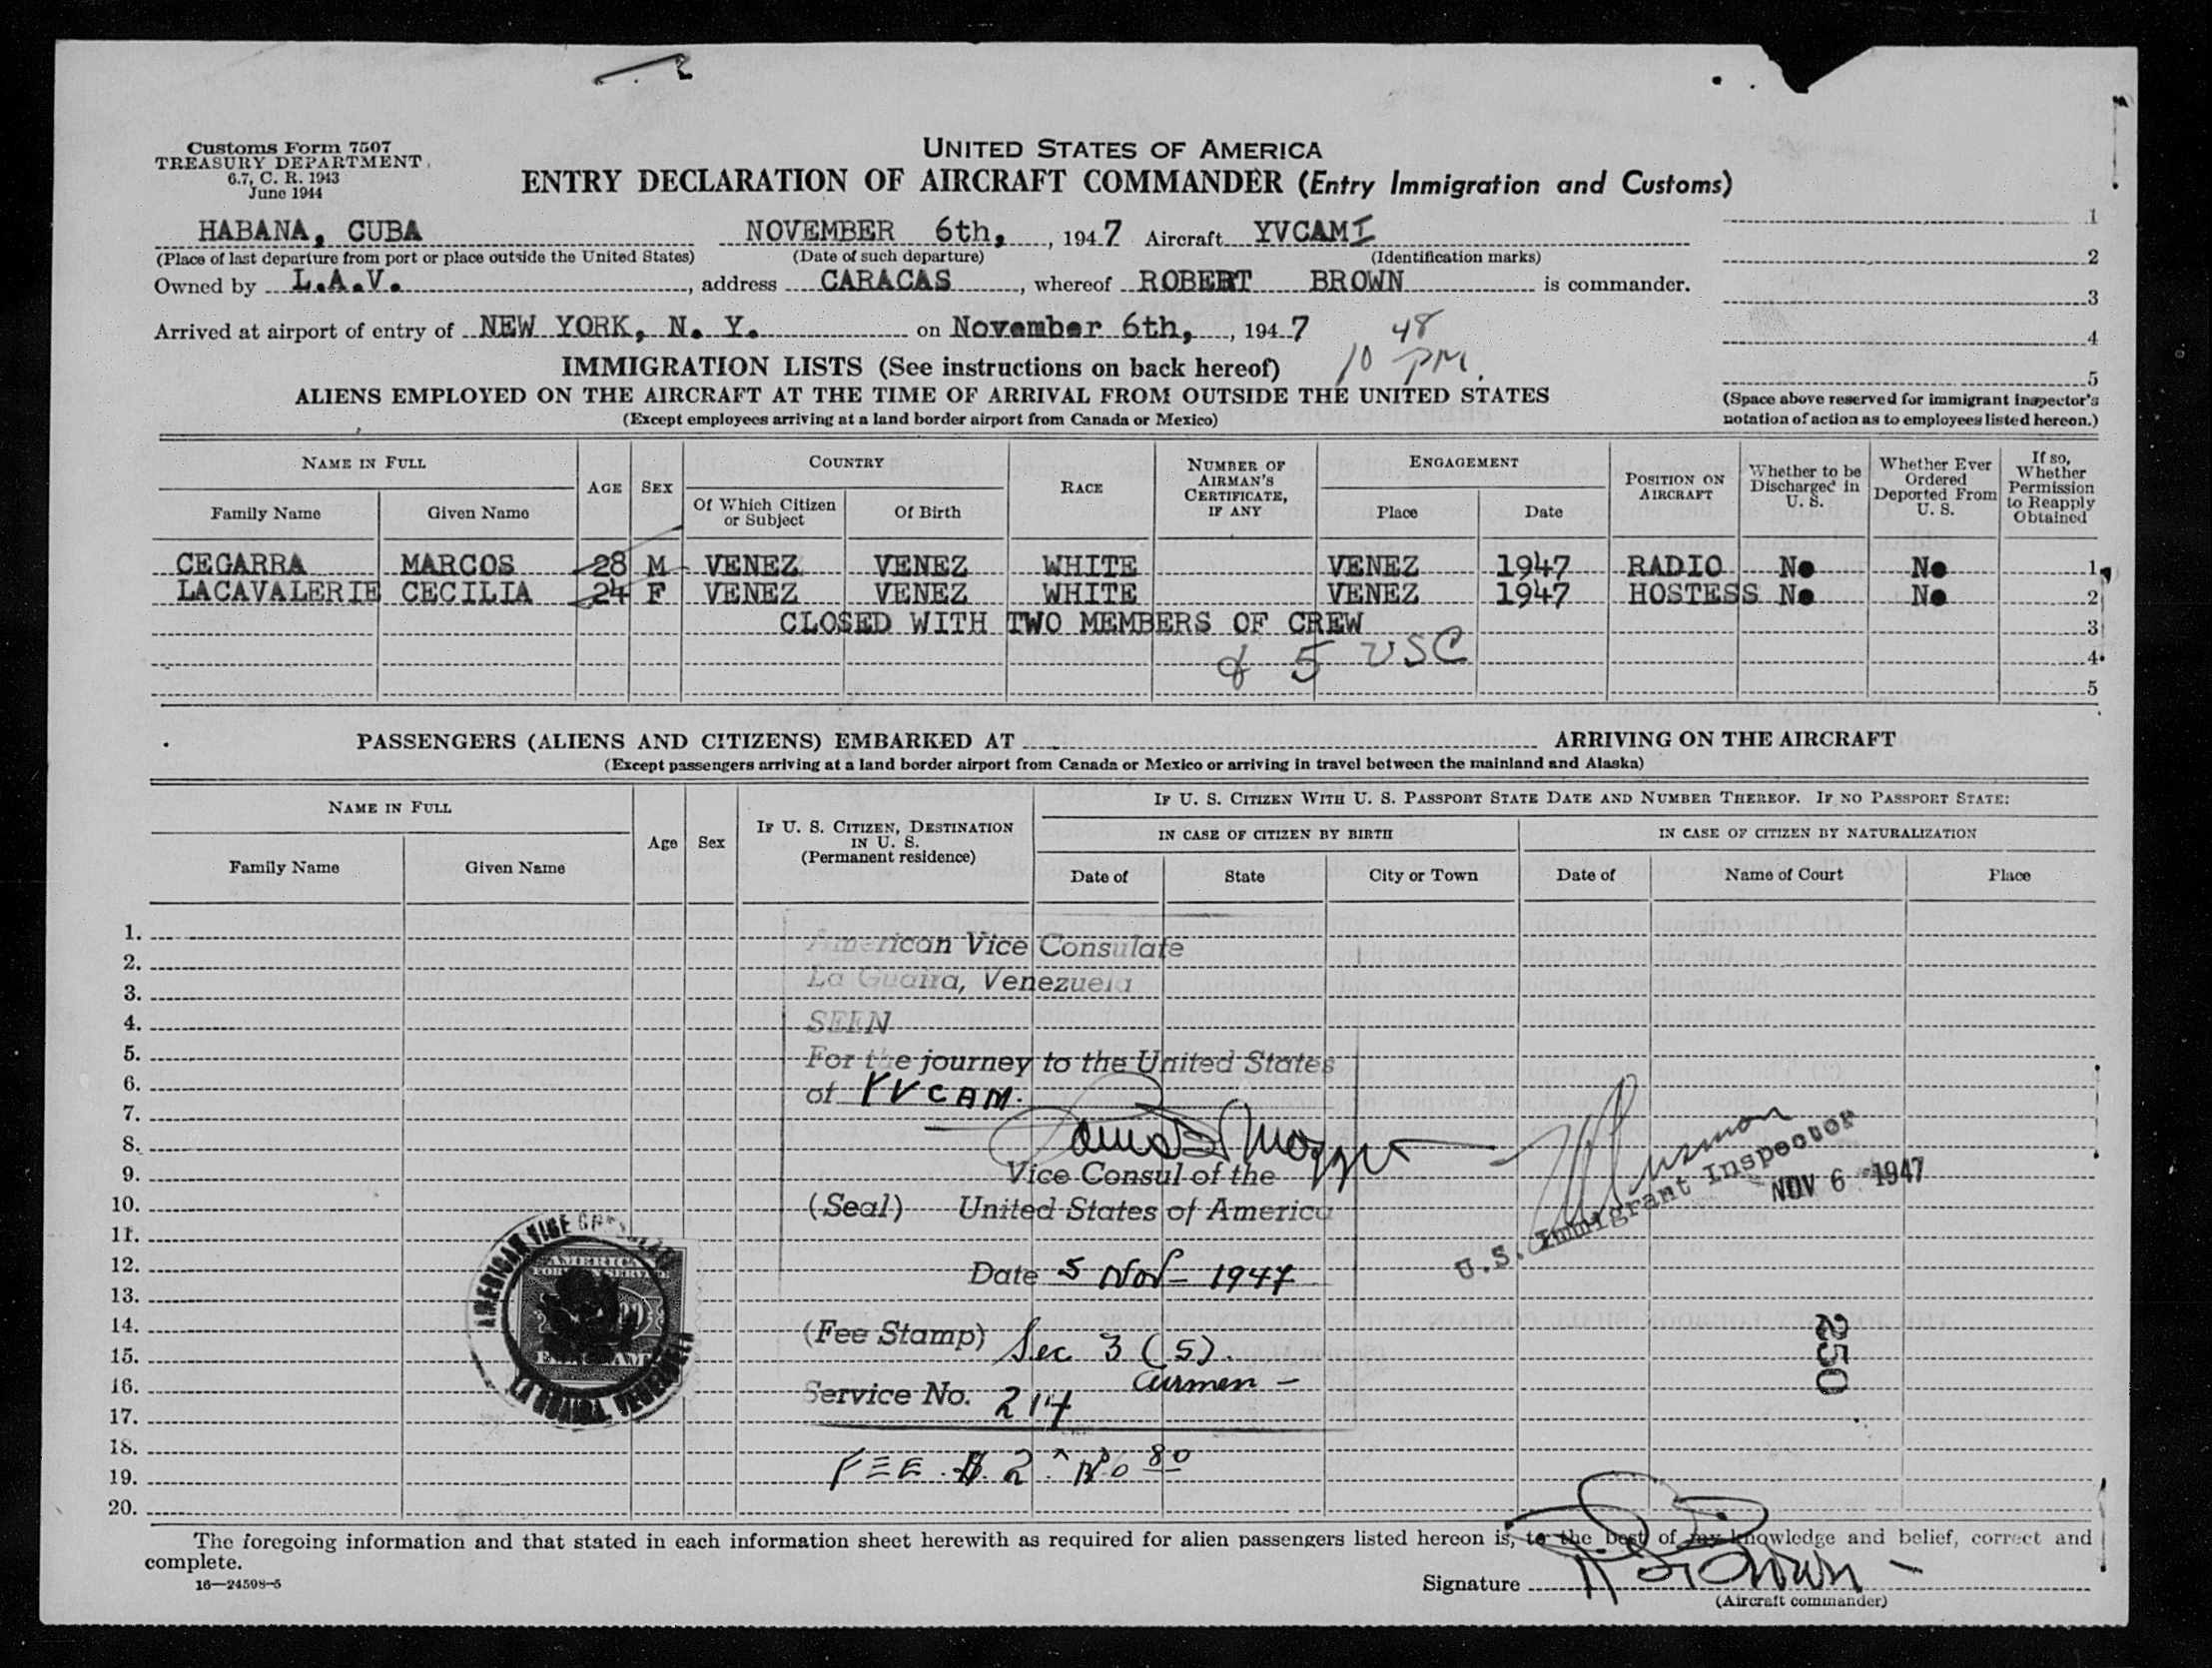 Customs Form 7507
TREASURY DEPARTMENT
6.7, C. R. 1943
June 1944
UNITED STATES OF AMERICA
ENTRY DECLARATION OF AIRCRAFT COMMANDER (Entry Immigration and Customs)
HABANA, CUBA NOVEMBER 6th, , 1947 Aircraft YVCAMI
(Place of last departure from port or place outside the United States) (Date of such departure) (Identification marks)
Owned by L.A.V. , address CARACAS , whereof ROBERT BROWN is commander.
Arrived at airport of entry of NEW YORK, N. Y. on November 6th, , 1947
10 48 PM.
1
2
3
4
5
(Space above reserved for immigrant inspector's
notation of action as to employees listed hereon.)
IMMIGRATION LISTS (See instructions on back hereof)
ALIENS EMPLOYED ON THE AIRCRAFT AT THE TIME OF ARRIVAL FROM OUTSIDE THE UNITED STATES
(Except employees arriving at a land border airport from Canada or Mexico)
NAME IN FULL
Family Name Given Name
AGE
SEX
COUNTRY
Of Which Citizen or Subject
Of Birth
RACE
NUMBER OF AIRMAN'S CERTIFICATE, IF ANY
ENGAGEMENT
Place Date
POSITION ON AIRCRAFT
Whether to be Discharged in U. S.
Whether Ever Ordered Deported From U. S.
If so, Whether Permission to Reapply Obtained
CEGARRA MARCOS 28 M VENEZ VENEZ WHITE VENEZ 1947 RADIO No No 1
LACAVALERIE CECILIA 24 F VENEZ VENEZ WHITE VENEZ 1947 HOSTESS No No 2
CLOSED WITH TWO MEMBERS OF CREW 3
& 5 USC 4
5
PASSENGERS (ALIENS AND CITIZENS) EMBARKED AT ARRIVING ON THE AIRCRAFT
(Except passengers arriving at a land border airport from Canada or Mexico or arriving in travel between the mainland and Alaska)
NAME IN FULL
Family Name Given Name
Age
Sex
IF U. S. CITIZEN, DESTINATION IN U. S.
(Permanent residence)
IF U. S. CITIZEN WITH U. S. PASSPORT STATE DATE AND NUMBER THEREOF. IF NO PASSPORT STATE:
IN CASE OF CITIZEN BY BIRTH
Date of State City or Town
IN CASE OF CITIZEN BY NATURALIZATION
Date of Name of Court Place
1.
2.
3.
4.
5.
6.
7.
8.
9.
10.
11.
12.
13.
14.
15.
16.
17.
18.
19.
20.
American Vice Consulate
La Guaira, Venezuela
SEEN
For the journey to the United States
of YVCAM.
Vice Consul of the
(Seal) United States of America
Date 5 Nov - 1947
(Fee Stamp) Sec 3 (5).
airmen -
Service No. 214
FEE $ 2
U.S. Immigrant Inspector
NOV 6 1947
250
The foregoing information and that stated in each information sheet herewith as required for alien passengers listed hereon is, to the best of my knowledge and belief, correct and
complete.
16—24598-5
Signature R Brown
(Aircraft commander)